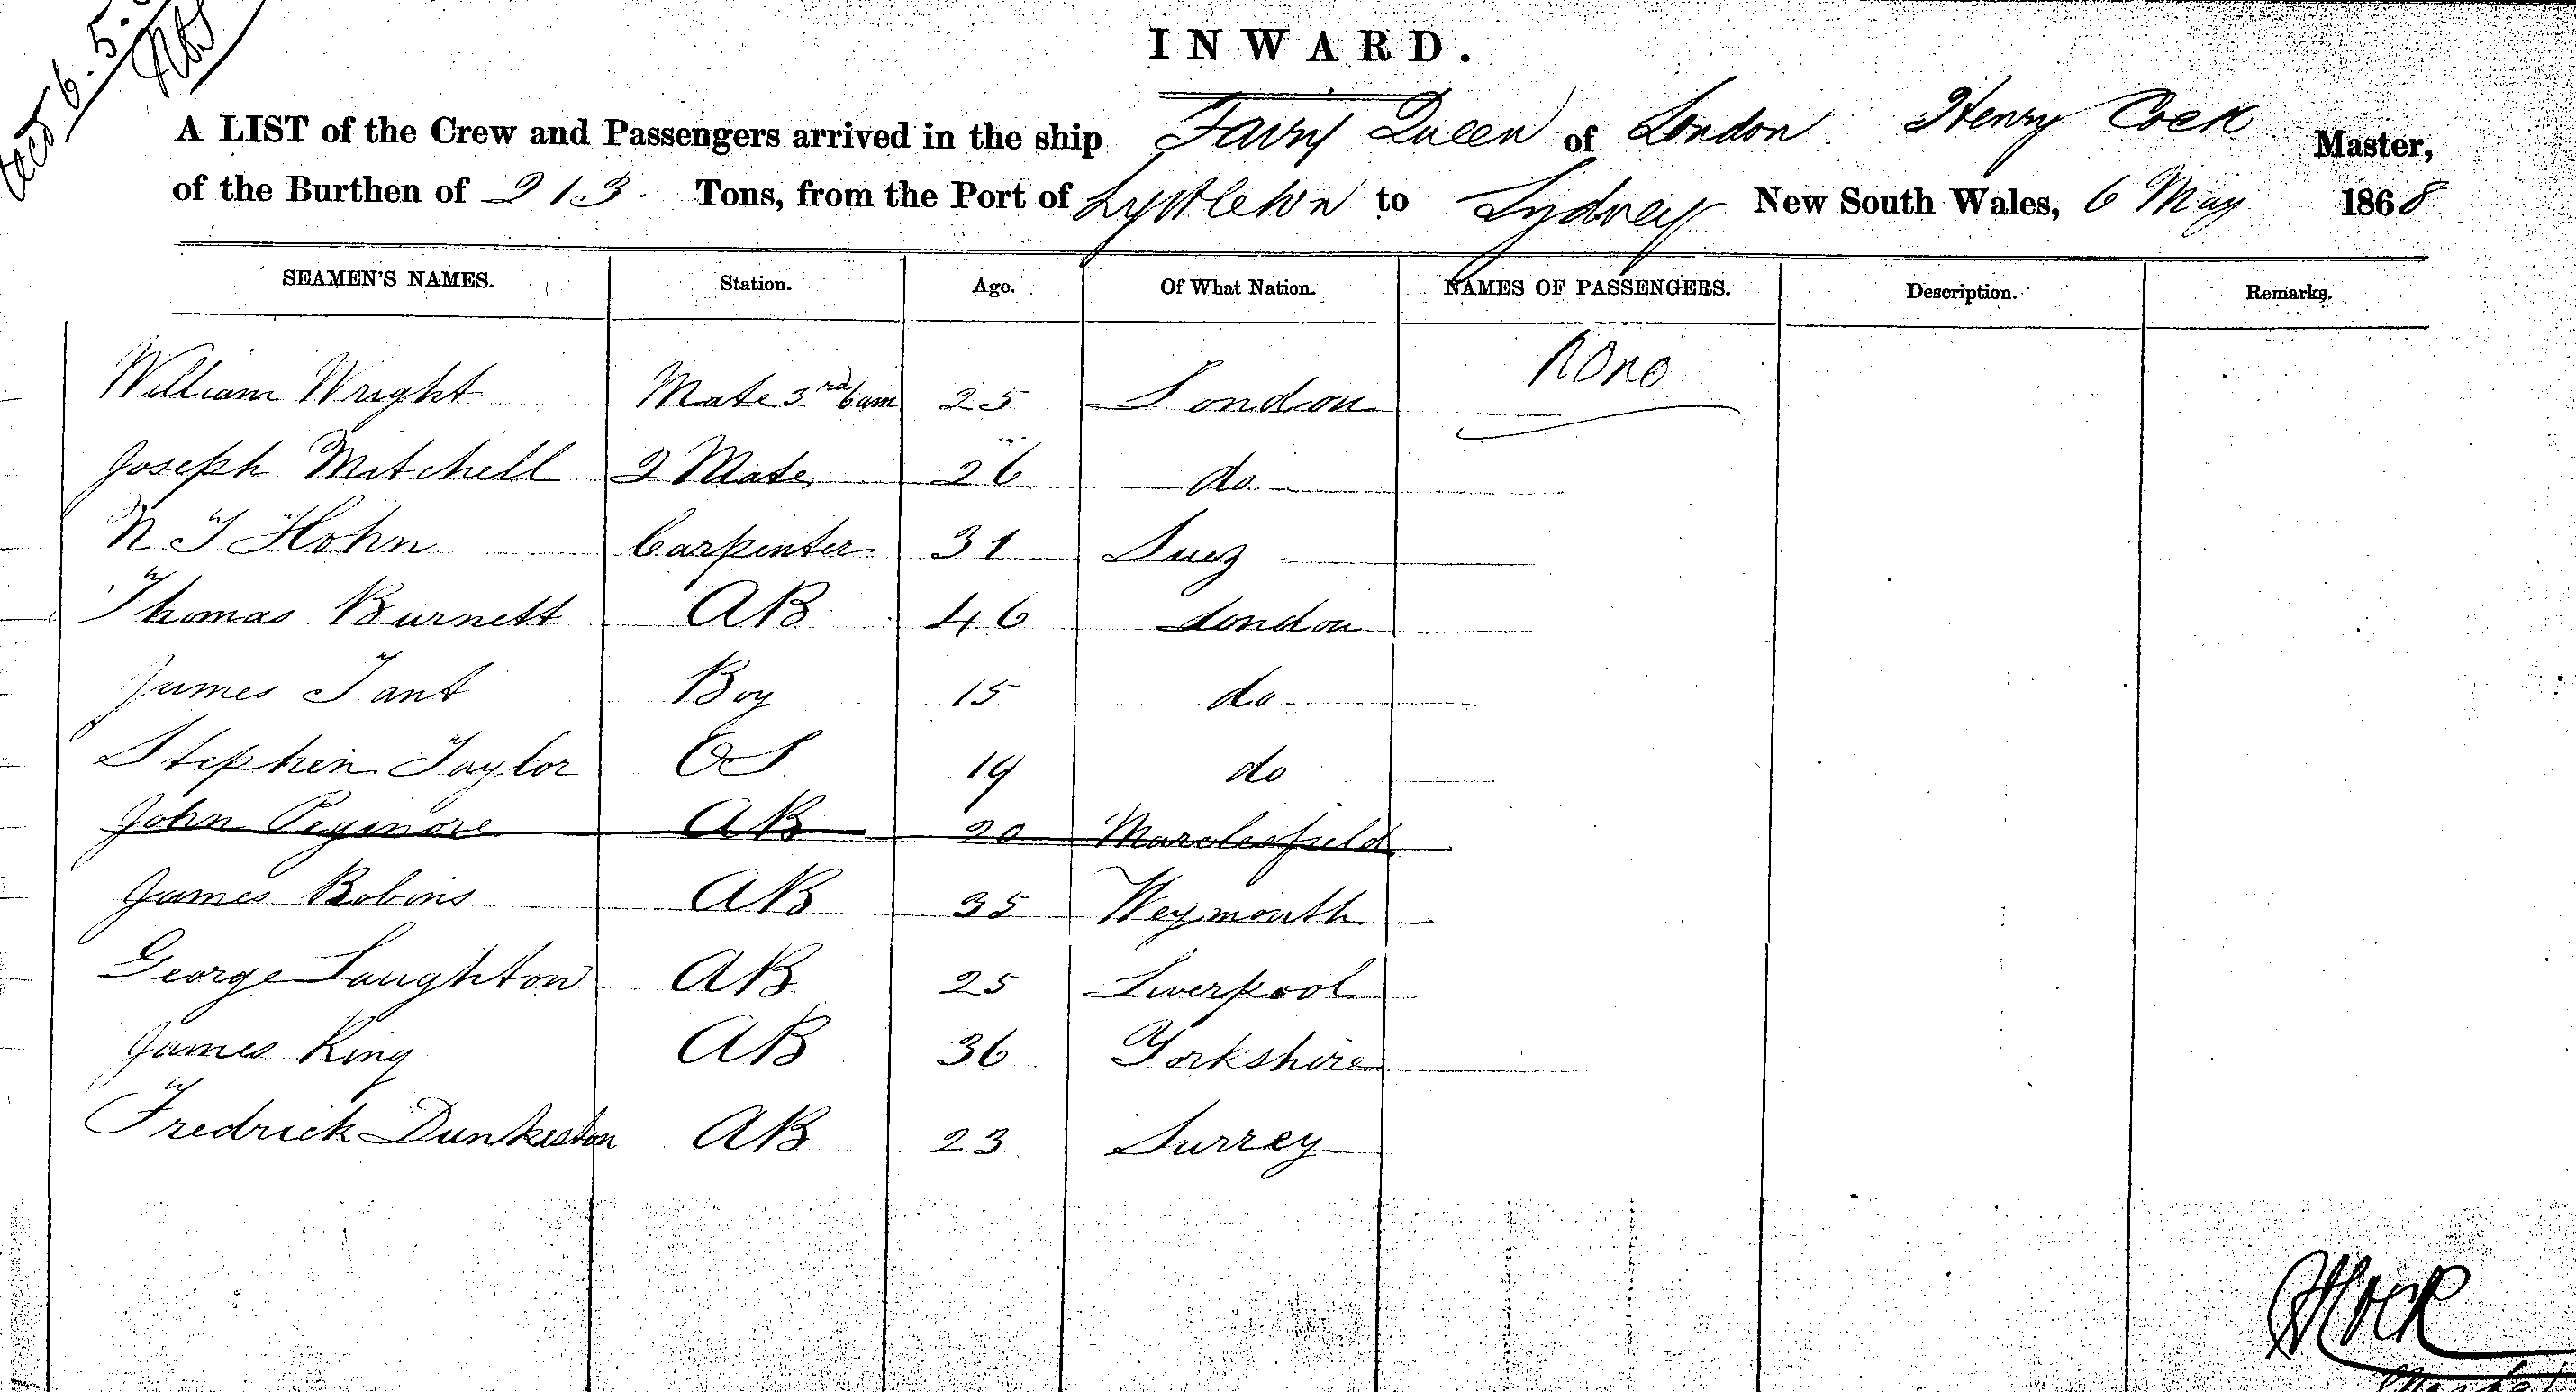 recd 6.5.
INWARD.
A LIST of the Crew and Passengers arrived in the ship Fairy Queen of London Henry Cock Master,
of the Burthen of 213 Tons, from the Port of Lyttleton to Sydney New South Wales, 6 May 1868
SEAMEN'S NAMES. Station. Age. Of What Nation. NAMES OF PASSENGERS. Description. Remarks.
William Wright Mate 25 London None
Joseph Mitchell 2 Mate 26 do
N J Hohn Carpenter 31 Suez
Thomas Burnett AB 46 London
James Tant Boy 15 do
Stephen Taylor OS 19 do
John AB 20
James Robins AB 35 Weymouth
George Laughton AB 25 Liverpool
James King AB 36 Yorkshire
Fredrick Dunkeston AB 23 Surrey
HCock